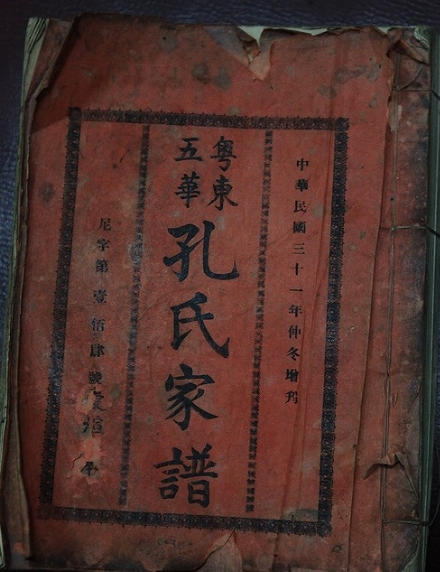 中華民國三十一年仲冬增刋
粵東
五華
孔氏家譜
尼字第壹佰肆號